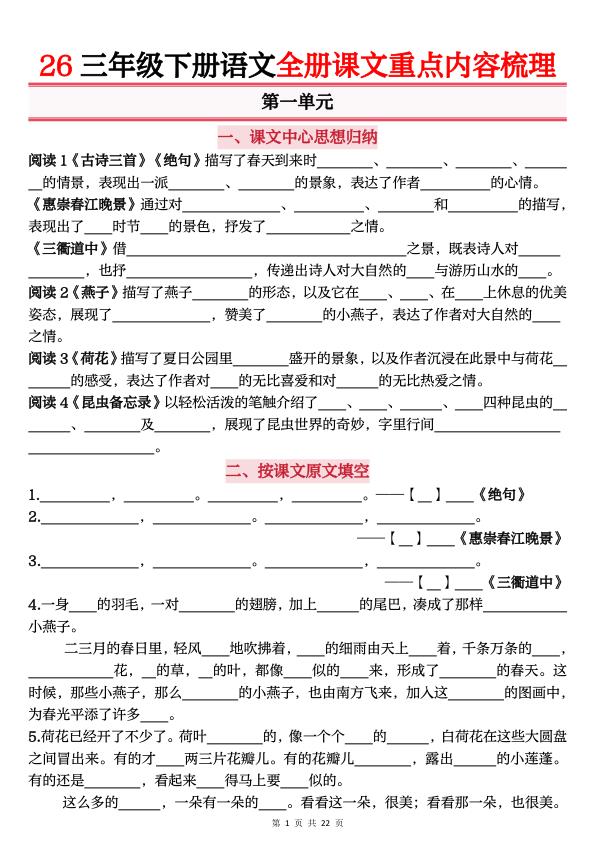 26 三年级下册语文全册课文重点内容梳理
第一单元
一、课文中心思想归纳
阅读 1《古诗三首》《绝句》描写了春天到来时________、________、________、______
__的情景，表现出一派________、________的景象，表达了作者__________的心情。
《惠崇春江晚景》通过对______________、__________、________和__________的描写，
表现出了____时节____的景色，抒发了____________之情。
《三衢道中》借________________________________________之景，既表诗人对______
________，也抒__________________，传递出诗人对大自然的____与游历山水的____。
阅读 2《燕子》描写了燕子________的形态，以及它在____、____、在____上休息的优美
姿态，展现了______________，赞美了________的小燕子，表达了作者对大自然的____
之情。
阅读 3《荷花》描写了夏日公园里________盛开的景象，以及作者沉浸在此景中与荷花__
______的感受，表达了作者对____的无比喜爱和对______的无比热爱之情。
阅读 4《昆虫备忘录》以轻松活泼的笔触介绍了____、____、______、____四种昆虫的__
______、________及________，展现了昆虫世界的奇妙，字里行间__________________
__________________。
二、按课文原文填空
1.__________，__________。__________，__________。——【__】____《绝句》
2.______________，______________。______________，______________。
——【__】____《惠崇春江晚景》
3.______________，______________。______________，______________。
——【__】____《三衢道中》
4.一身____的羽毛，一对________的翅膀，加上______的尾巴，凑成了那样____________
小燕子。
二三月的春日里，轻风____地吹拂着，____的细雨由天上____着，千条万条的____，
____________花，__的草，__的叶，都像____似的____来，形成了________的春天。这
时候，那些小燕子，那么________的小燕子，也由南方飞来，加入这________的图画中，
为春光平添了许多____。
5.荷花已经开了不少了。荷叶________的，像一个个____的______，白荷花在这些大圆盘
之间冒出来。有的才____两三片花瓣儿。有的花瓣儿________，露出______的小莲蓬。
有的还是________，看起来____得马上要____似的。
这么多的______，一朵有一朵的____。看看这一朵，很美；看看那一朵，也很美。
第 1 页 共 22 页